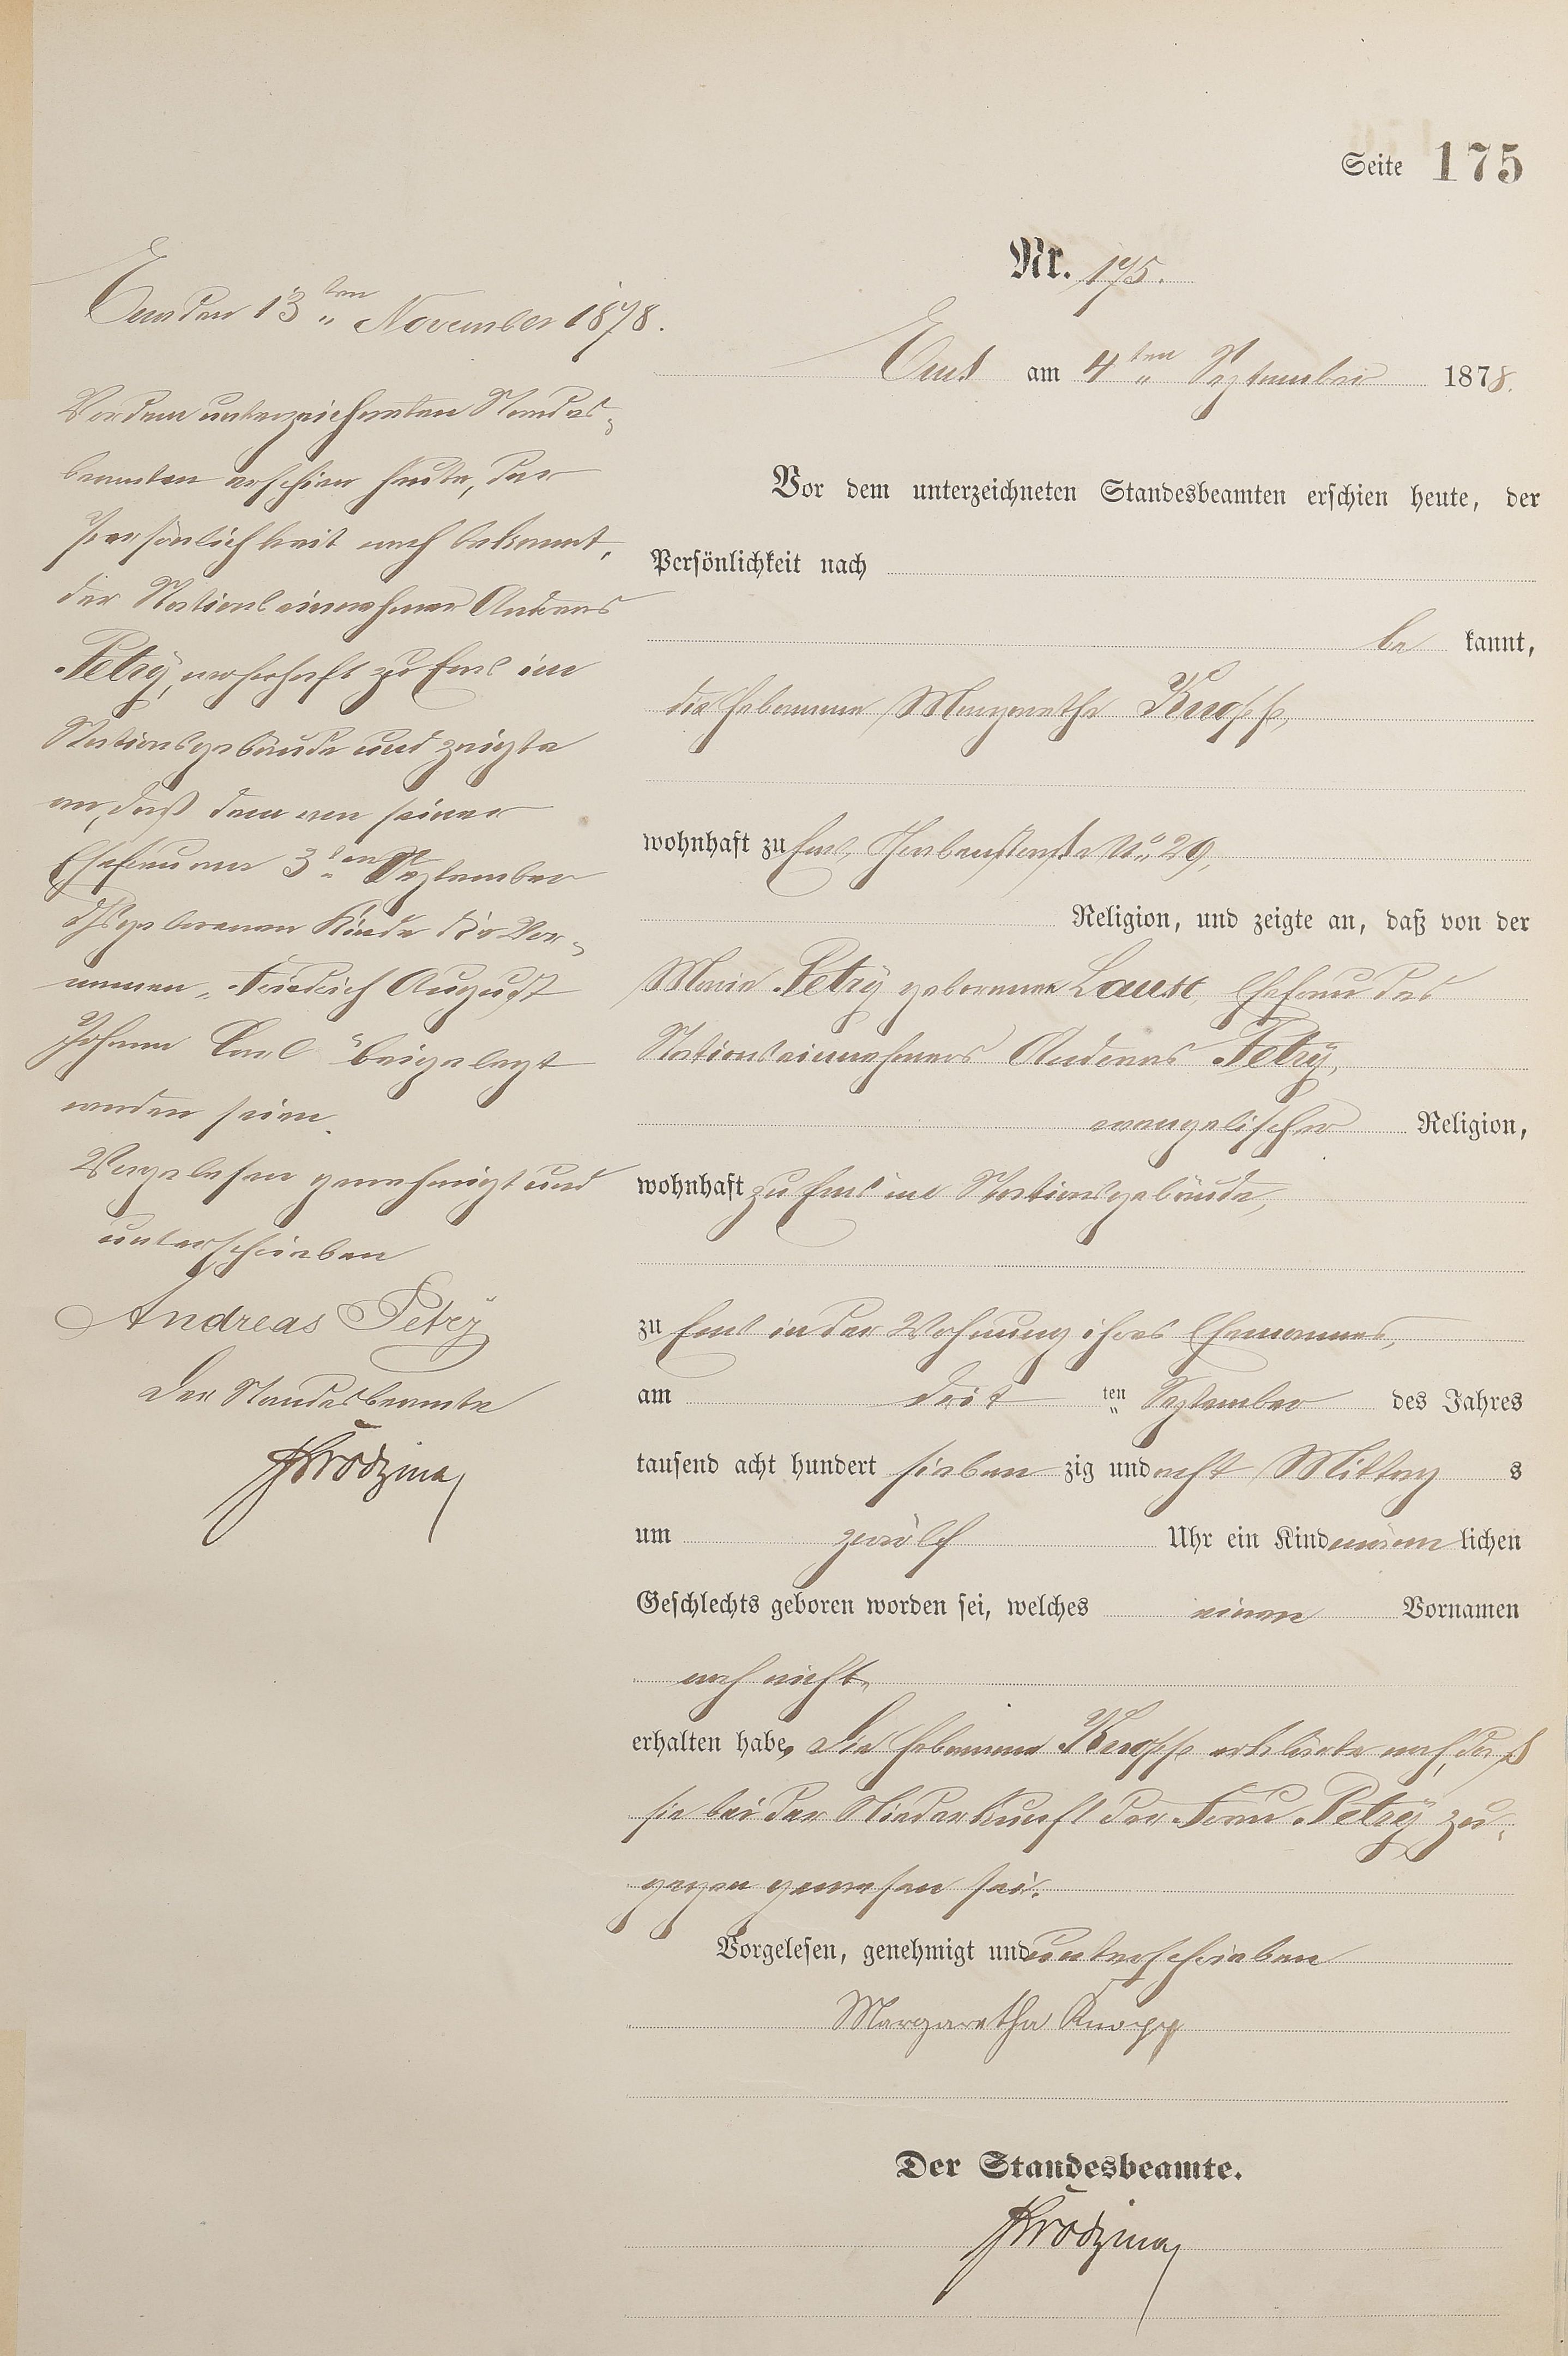 Seite 175
Nr. 175.
Ems am 4ten September 1878.
Vor dem unterzeichneten Standesbeamten erschien heute, der
Persönlichkeit nach
be kannt,
die Hebamme Margarethe Knopp,
wohnhaft zu Ems, No 29,
Religion, und zeigte an, daß von der
Marie Petry geborenen Ehefrau des
Stationseinnehmers Andreas Petry,
evangelischer Religion,
wohnhaft zu Ems im Stationsgebäude,
zu Ems in der Wohnung ihres Ehemannes,
am dritten September des Jahres
tausend acht hundert siebenzig und acht Mittags
um zwölf Uhr ein Kind männlichen
Geschlechts geboren worden sei, welches einen Vornamen
noch nicht
erhalten habe, Die Hebamme Knopp erklärte noch, daß
sie bei der Niederkunft der Frau Petry zu-
gegen gewesen sei.
Vorgelesen, genehmigt und unterschrieben
Margaretha Knopp
Der Standesbeamte.
Ems den 13ten November 1878.
Vor dem unterzeichneten Standes-
beamten erschien heute, der
Persönlichkeit nach bekannt,
der Stationseinnehmer Andreas
Petry, wohnhaft zu Ems im
Stationsgebäude und zeigte
an, daß dem von seiner
Ehefrau am 3ten September
geborenen Kinde die Vor-
namen „Friedrich August
Johann Carl" beigelegt
worden seien.
Vorgelesen genehmigt und
unterschrieben
Andreas Petry
Der Standesbeamte